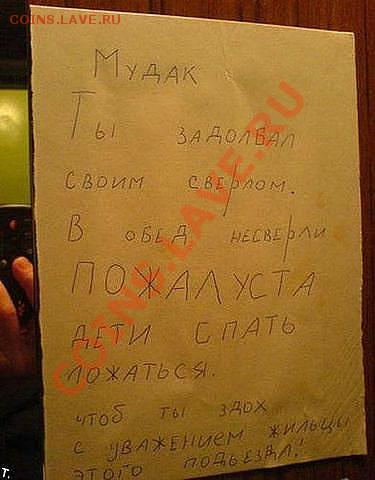 COINS.LAVE.RU
Мудак
Ты задолбал
своим сверлом.
В обед несверли
пожалуста
дети спать
ложаться.
чтоб ты здох
с уважением жильцы
этого подьезда!
COINS.LAVE.RU
т.